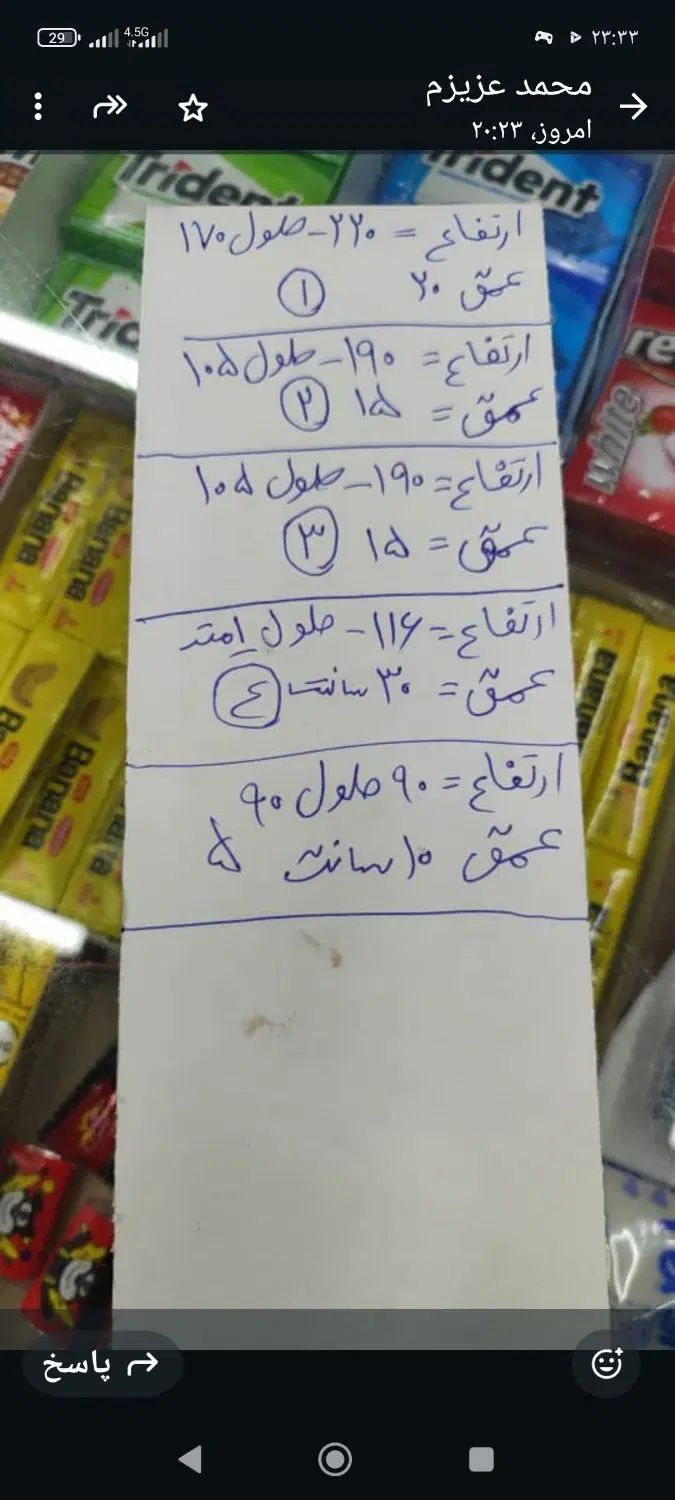 29 4.5G ۲۳:۳۳
محمد عزیزم
امروز، ۲۰:۲۳
Trident
Trident
Trident
ارتفاع = ۲۲۰ - طول ۱۷۰
عمق ۲۰ ۱
ارتفاع = ۱۹۰ - طول ۱۰۵
عمق = ۱۵ ۲
ارتفاع = ۱۹۰ - طول ۱۰۵
عمق = ۱۵ ۳
ارتفاع = ۱۱۶ - طول ۱متد
عمق = ۳۰ سانت ٤
ارتفاع = ۹۰ طول ۹۰
عمق ۱۰ سانت ۵
white
Banana
Banana
Banana
Banana
Banana
Banana
پاسخ